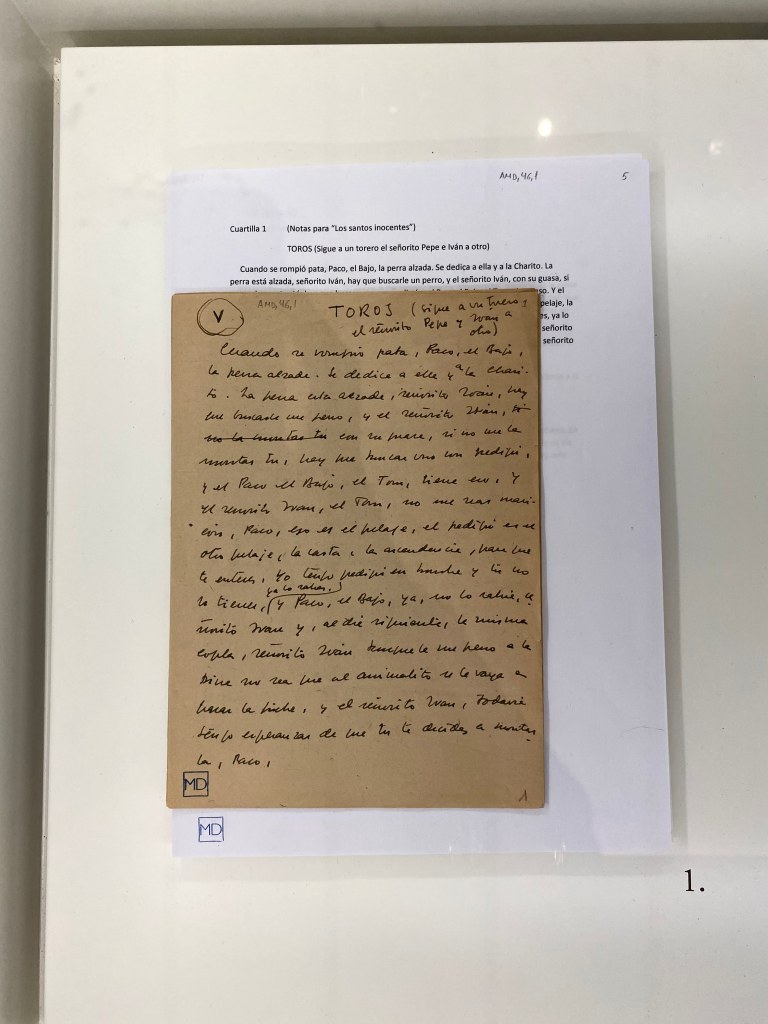 AMD,46,1 5
Cuartilla 1 (Notas para "Los santos inocentes")
TOROS (Sigue a un torero el señorito Pepe e Iván a otro)
Cuando se rompió pata, Paco, el Bajo, la perra alzada. Se dedica a ella y a la Charito. La
perra está alzada, señorito Iván, hay que buscarle un perro, y el señorito Iván, con su guasa, si
so. Y el
pelaje, la
es, ya lo
señorito
señorito
V
AMD,46,1
TOROS (Sigue a un torero
el señorito Pepe y Iván a
otro)
Cuando se rompió pata, Paco, el Bajo,
la perra alzada. Se dedica a ella y a la Chari-
to. La perra está alzada, señorito Iván, hay
que buscarle un perro, y el señorito Iván, si
no la montas tu con su guasa, si no me la
montas tu, hay que buscar uno con pedigrí,
y el Paco el Bajo, el Tom, tiene eso, y
el señorito Ivan, el Tom, no me seas mari-
cón, Paco, eso es el pelaje, el pedigrí es
otro pelaje, la casta, la ascendencia, para que
te enteres. Yo tengo pedigrí en and tú no
lo tienes, y Paco, el Bajo, ya, no lo sabía, se
ya lo sabes.
ñorito Ivan y, al día siguiente, la misma
copla, señorito Iván búsquele un perro a la
Dina no sea que al animalito se le vaya a
pasar la , y el señorito Ivan, Todavía
tengo esperanzas de que tu te decidas a montar
la, Paco,
MD
1
MD
1.